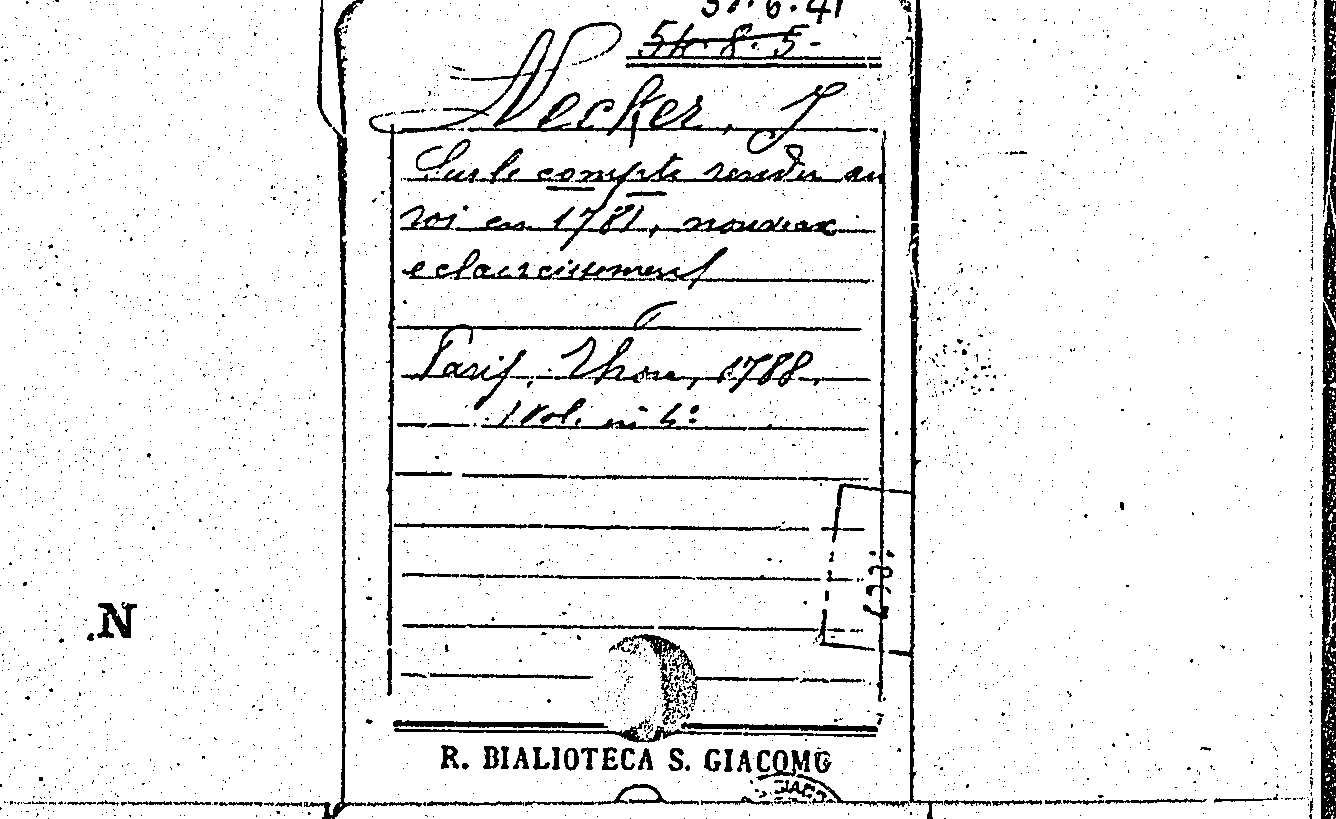 54.8.5-
Necker, J
Sur le compte rendu au
roi en 1781, nouveax
eclaircissement
Parif, Thou, 1788.
1 Vol. in 4º
N
R. BIALIOTECA S. GIACOMO
GIACO